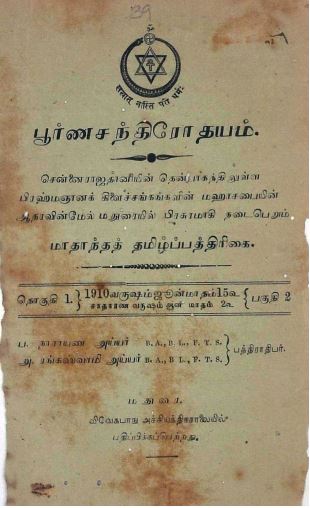 139
ஸத்யாந் நாஸ்தி பரோ தர்ம:
பூர்ணசந்திரோதயம்.
சென்னைராஜதானியின் தென்பாகத்திலுள்ள
பிரஹ்மஞானக் கிளைச்சங்கங்களின் மஹாசபையின்
ஆதரவின்மேல் மதுரையில் பிரசுரமாகி நடைபெறும்
மாதாந்தத் தமிழ்ப்பத்திரிகை.
தொகுதி 1. 1910 வருஷம் ஜூன் மாதம் 15௳ பகுதி 2
சாதாரண வருஷம் ஆனி மாதம் 2௳
ப. நாராயண அய்யர் B. A., B. L., F. T. S.
அ. ரங்கஸ்வாமி அய்யர் B. A., B. L., F. T. S.
பத்திராதிபர்.
மதுரை,
விவேகபாநு அச்சியந்திரசாலையில்
பதிப்பிக்கப்பெற்றது.